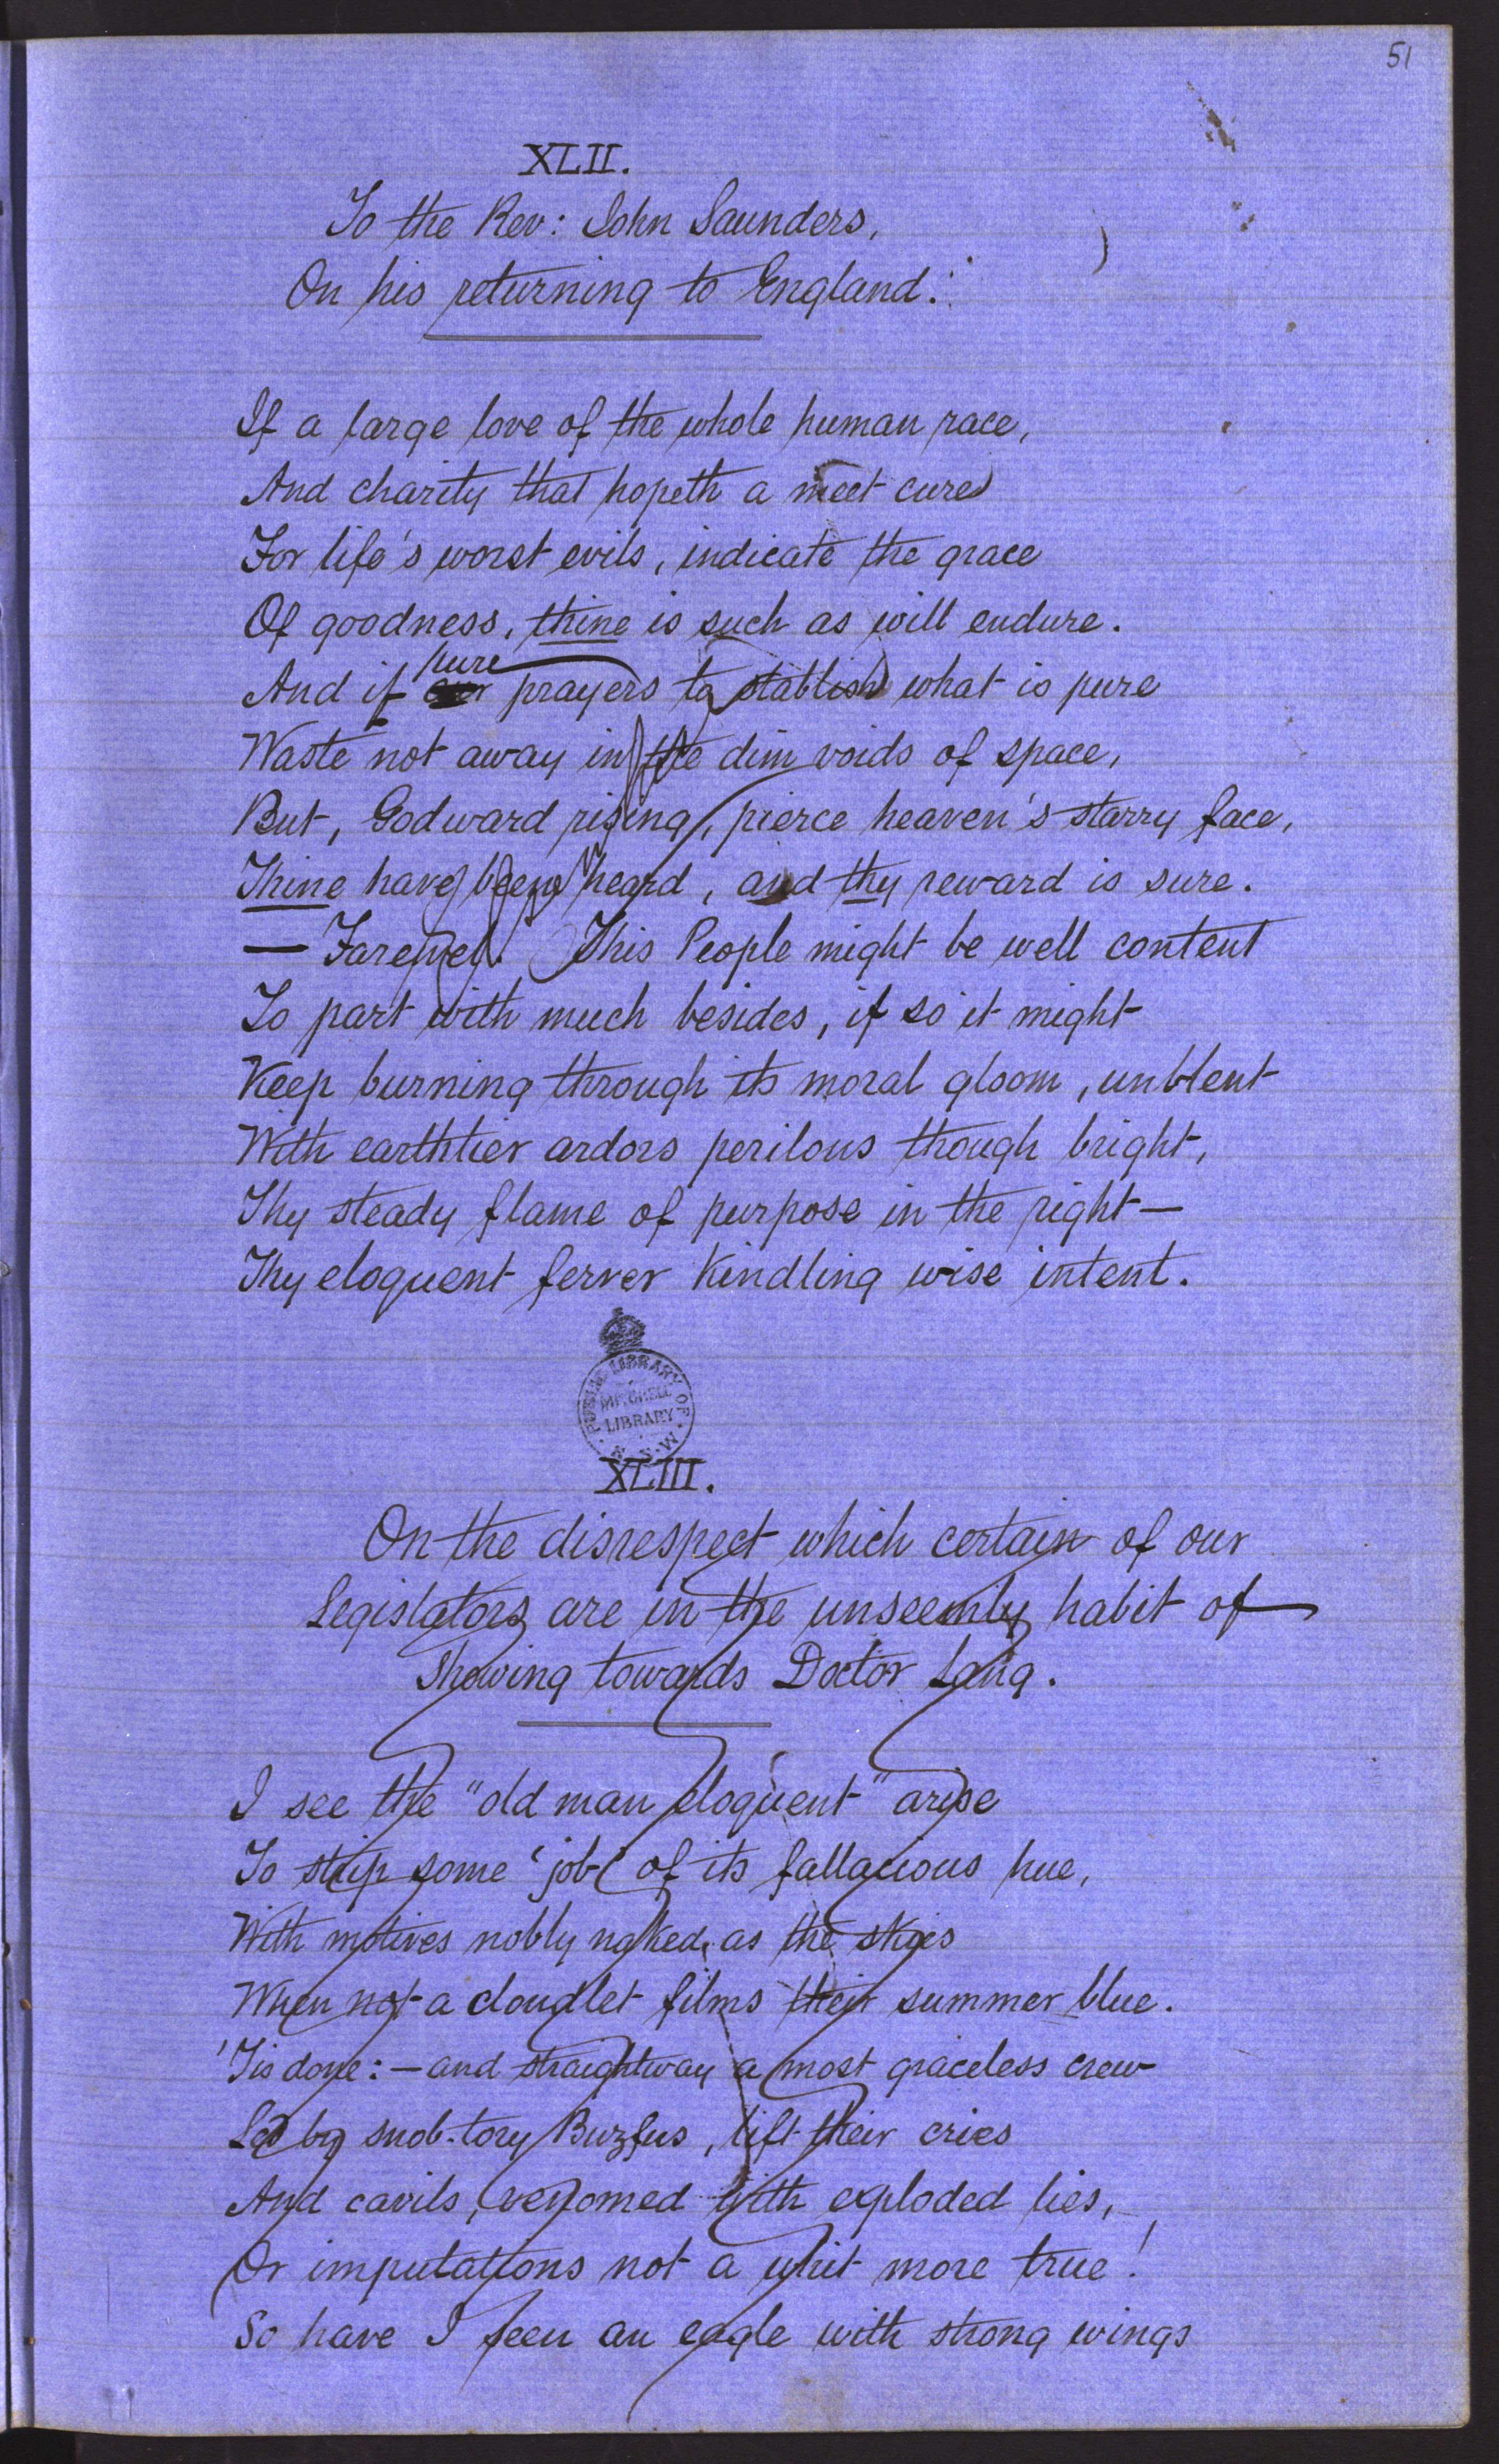 51
XLII.
To the Rev: John Saunders,
On his returning to England.
If a large love of the whole human race,
And charity that hopeth a meet cure
For life's worst evils, indicate the grace
Of goodness, thine is such as will endure.
pure
And if our prayers to stablish what is pure
Waste not away in the dim voids of space,
But, Godward rising, pierce heaven's starry face,
Thine have been heard, and thy reward is sure.
— Farewel! This People might be well content
To part with much besides, if so it might
Keep burning through its moral gloom, unblent
With earthlier ardors perilous though bright,
Thy steady flame of purpose in the right—
Thy eloquent ferver kindling wise intent.
PUBLIC LIBRARY OF N.S.W.
MITCHELL
LIBRARY
XLIII.
On the disrespect which certain of our
Legislators are in the unseemly habit of
showing towards Doctor Lang.
I see the "old man eloquent" arise
To strip some 'job' of its fallacious hue,
With motives nobly naked, as the skies
When not a cloudlet films their summer blue.
'Tis done:—and straightway a most graceless crew
Led by snob-tory Buzfus, lift their cries
And cavils, venomed with exploded lies,
Or imputations not a whit more true!
So have I seen an eagle with strong wings